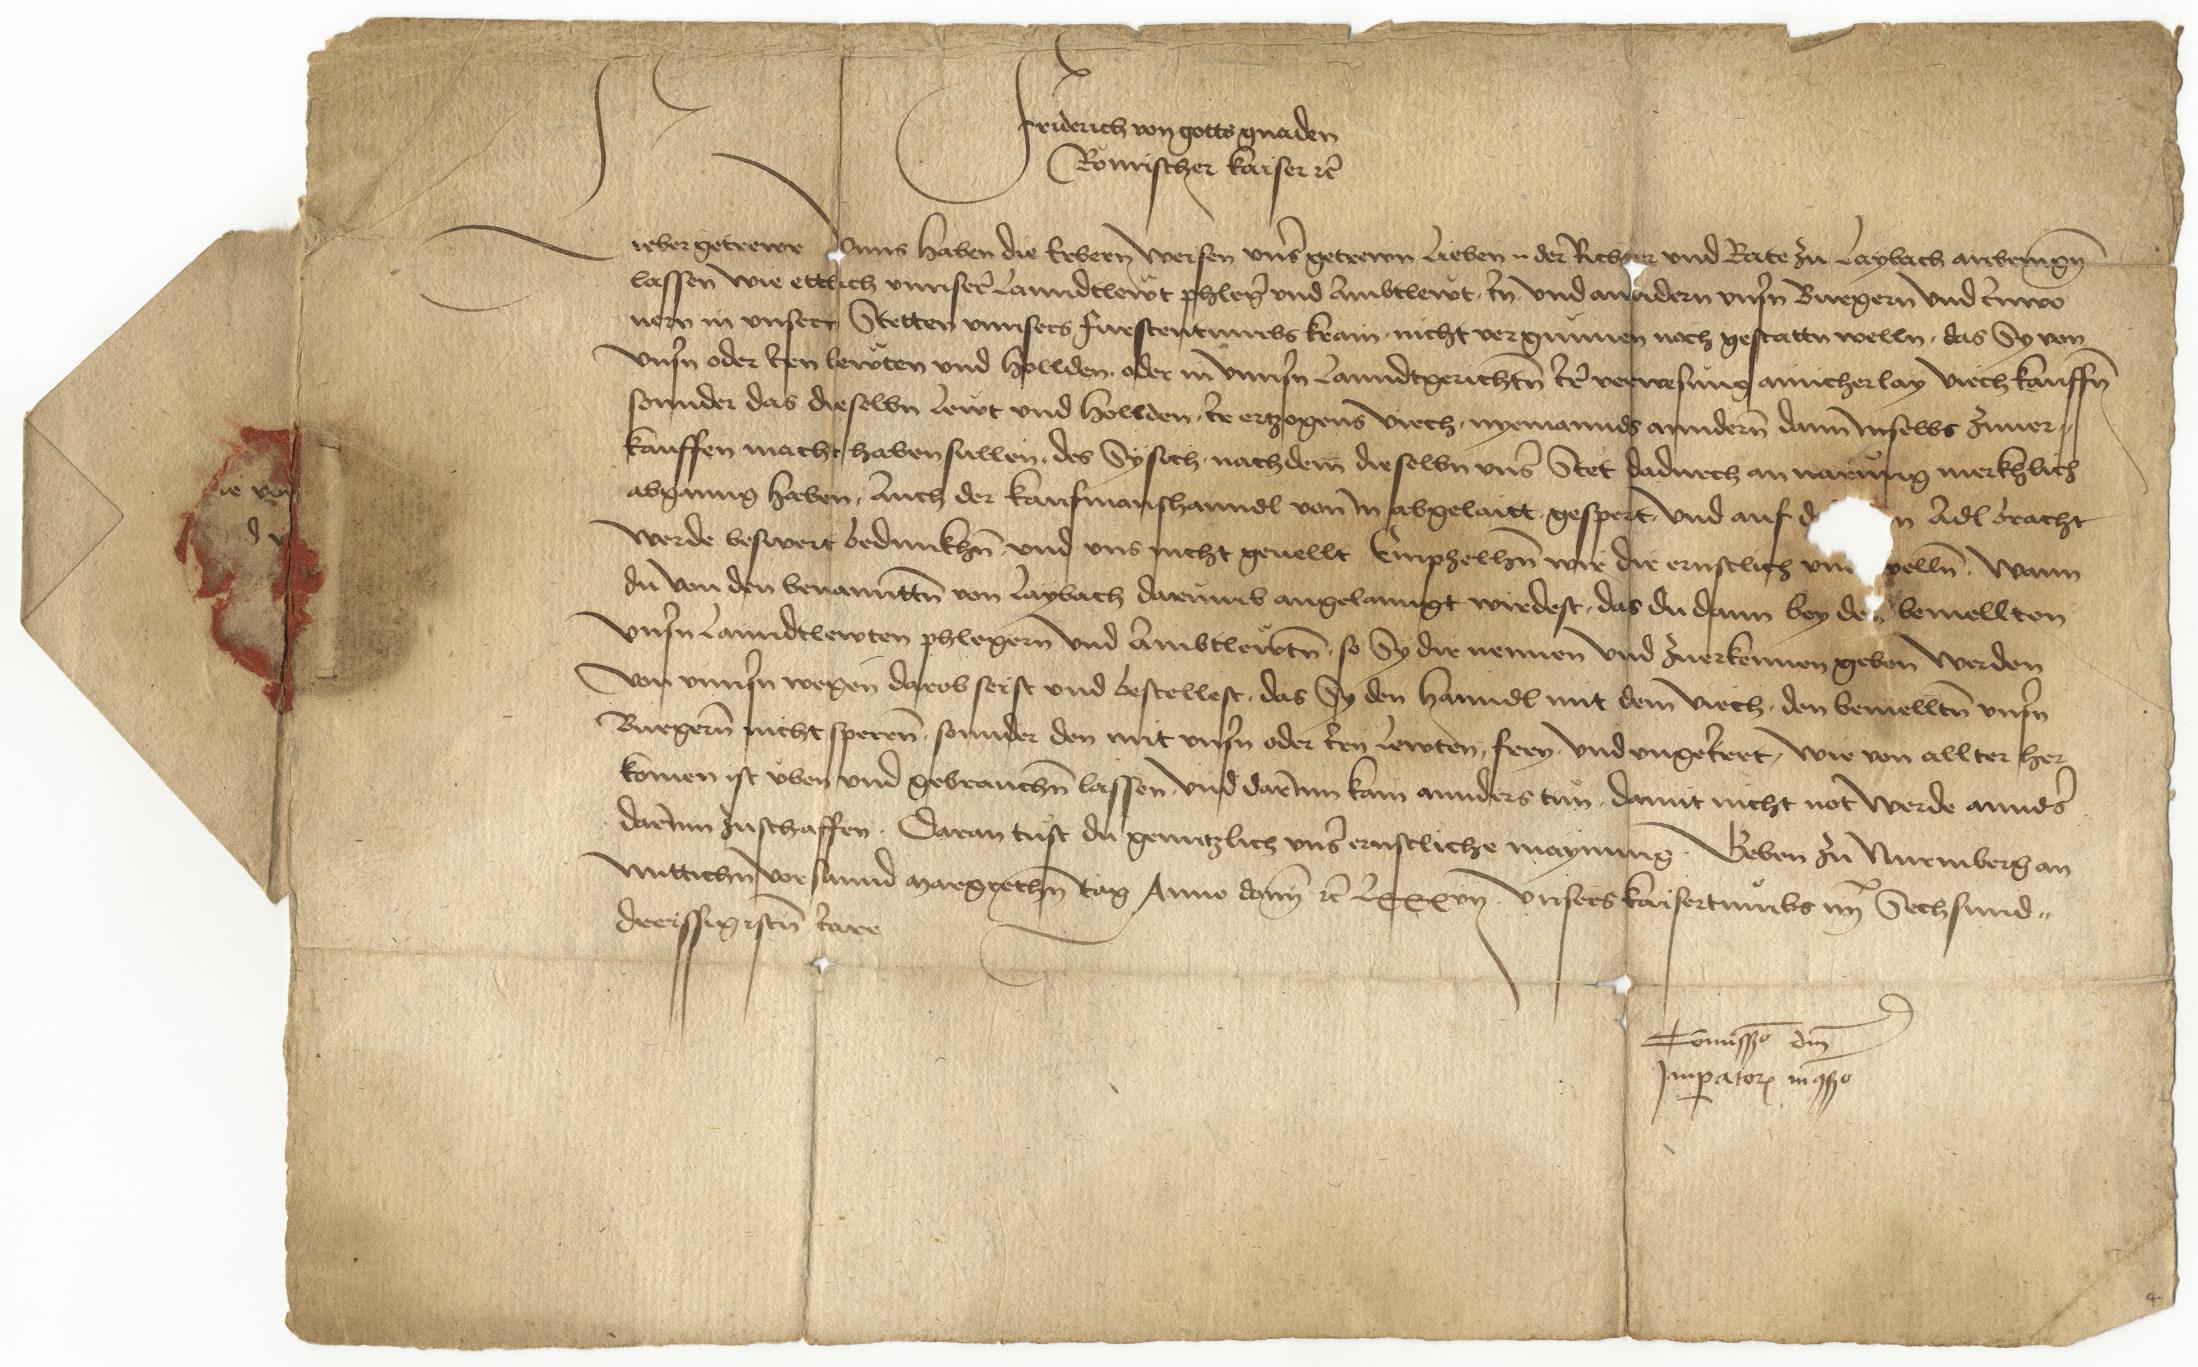 Friderich von gotts gnaden
Römischer kaiser rc̄
Lieber getrewr Vnns haben die Erbern Weisen vnns̄ getrewn Lieben n der Richter vnd Rate zu Laybach anbringn̄
lassen wie ettlich vnnser Lanndtlewt phleḡ vnd Ambtlewt In vnd anndern vnsn̄ Burgern vnd Inwo
nern in vnsern Stetten vnnsers Fuerstentumbs krain nicht vergunnen noch gestattn welln, das Sy von
vnsn̄ oder Iren lewten vnd hollden, oder in vnnsn̄ Lanndtgerichtn̄ Ir verwesung ainicherlay viech kauffn̄
sonnder das dieselbn lewt vnd hollden, Ir ertzogens viech, nyemannds anndern dann Inselbs zuuer„
kauffen macht haben sullen, des Sy sich, nachdem dieselbn vnns̄ Stet dadurch an narung merkhlich
abganng haben, Auch der kaufmanshanndl von In abgelaitt gespert, vnd auf d n Adl bracht
werde beswert bedunkhn̄, vnd vns nicht geuellt Emphelhn̄ wir dir ernstlich vn welln̄, Wann
du von den benanntn̄ von Laybach darumb angelanngt wirdest, das du dann bey den bemellten
vnsn̄ Lanndtlewten phlegern vnd Ambtlewtn̄, so Sy dir nennen vnd zuerkennen geben werden
von vnnsn̄ wegen darob seist vnd bestellest, das Sy den hanndl mit dem viech, den bemelltn̄ vnsn̄
Burgern̄ nicht speren̄, sonnder den mit vnsn̄ oder Irn lewten, frey vnd vngeirret, wie von allter her
komen ist üben vnd gebrauchn̄ lassen, vnd darInn kain annders tun, damit nicht not werde annds̄
darInn zuschaffen. Daran tust du genntzlich vnns̄ ernstliche maynung. Geben zu Nuremberg an
Mittichn vor sannd Margrethn̄ tag Anno domī rc̄ Lxxxvij. Vnsers kaisertumbs im Sechsund„
dreissigistn̄ Jare
Comissio dn̄i
Imperatoris in consilio